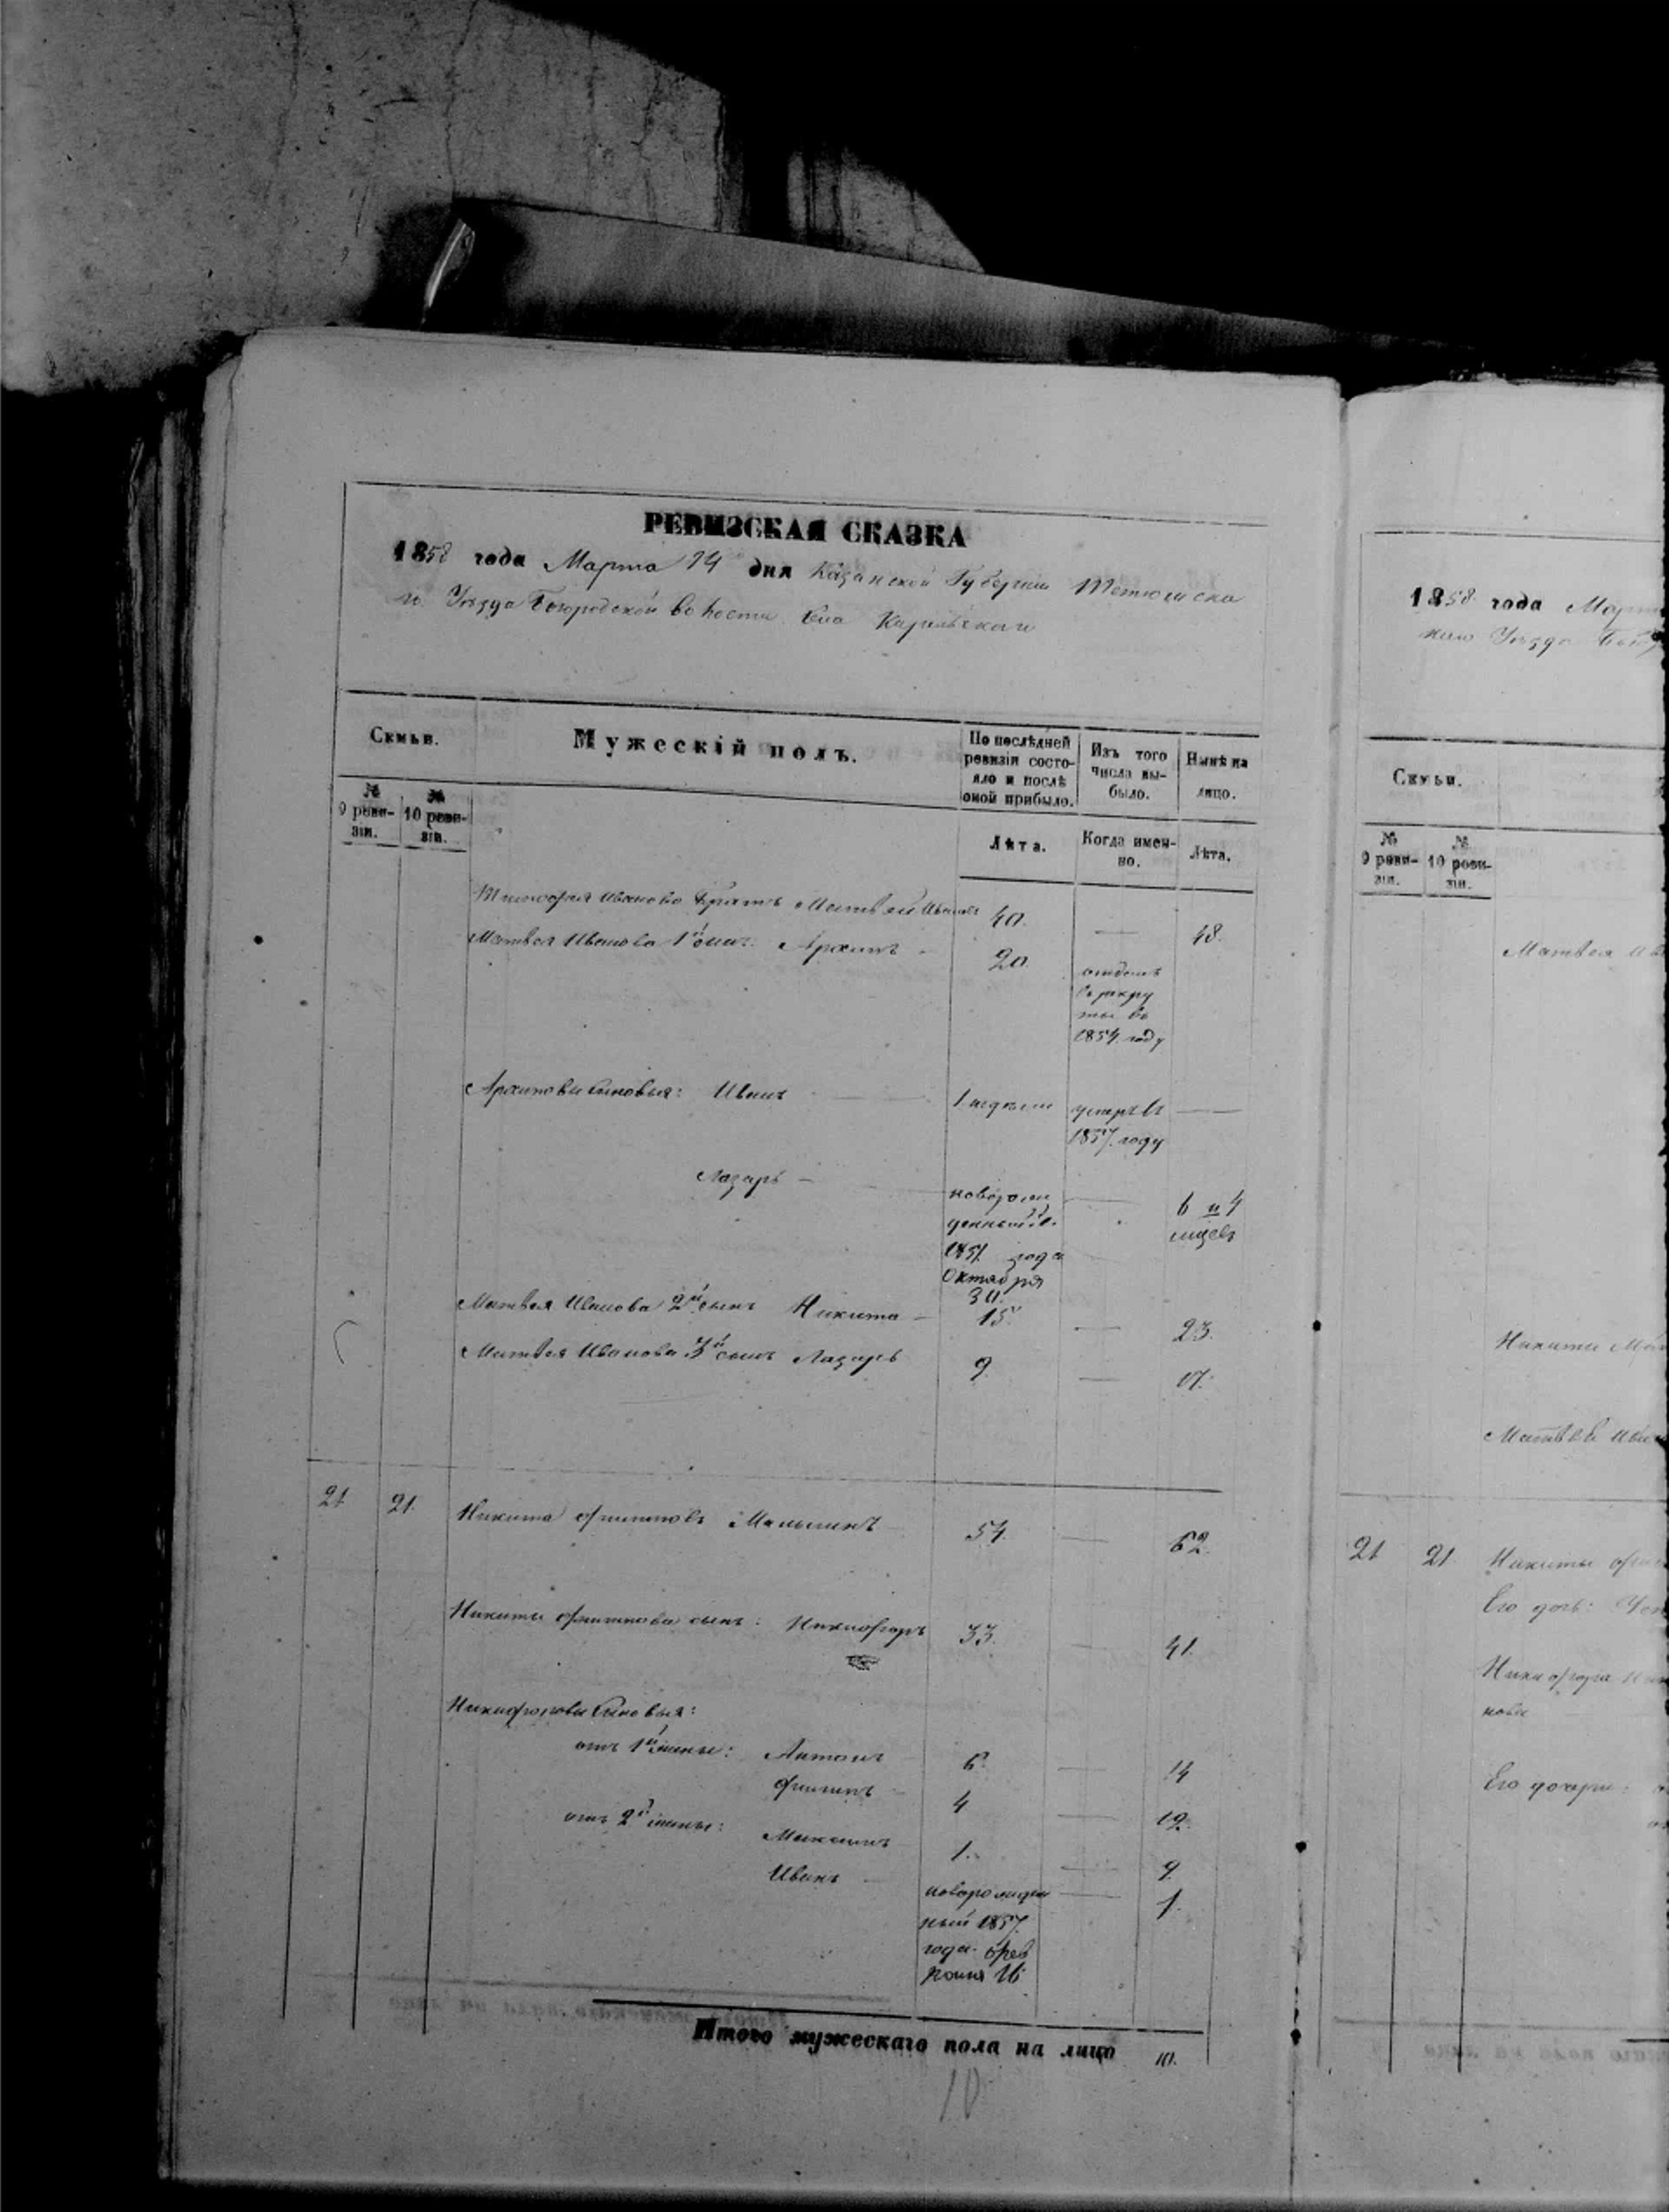 РЕВИЗСКАЯ СКАЗКА
1858 года Марта 14 дня Казанской Губернии Тетюшска
го Уѣзда Богородской волости Села
Семьи.
Мужескій полъ.
По послѣдней ревизіи состо-
яло и послѣ
оной прибыло.
Изъ того
числа вы-
было.
Нынѣ на
лицо.
№
9 реви-
зіи.
№
10 реви-
зіи.
Лѣта.
Когда имен-
но.
Лѣта.
Иванова братъ Матвей Ивановъ 40. — 48.
Матвея Иванова 1й сынъ Архипъ - 20.
отданъ
въ рекру
ты въ
1854 году
Архиповы сыновья: Иванъ — 1 недели умеръ въ —
1857 году
Лазарь — новорож
денный
1857 года
Октября
30.
— 6 и 4
месяцев
Матвея Иванова 2й сынъ Никита - 15. — 23.
Матвея Иванова 3й сынъ Лазарь 9. — 17.
21 21. Никита Филиповъ 54. — 62.
Никиты Филипова сынъ: Никифоръ 33. — 41.
Никифоровы сыновья:
отъ 1й жены: Антонъ 6. — 14
Филипъ - 4 — 12.
отъ 2й жены: Максимъ 1. — 9.
Иванъ — новорожден — 1.
ный 1857
года Фев
раля 16
Итого мужескаго пола на лицо 10.
10
1858 года Март
каго Уѣзда Бого
Семьи.
№
9 реви-
зіи.
№
10 реви-
зіи.
Матвея Ив
Никиты Ма
Матвея Ива
21 21 Никиты Фил
Его дочь:
Никифора Ник
нова
Его дочери: